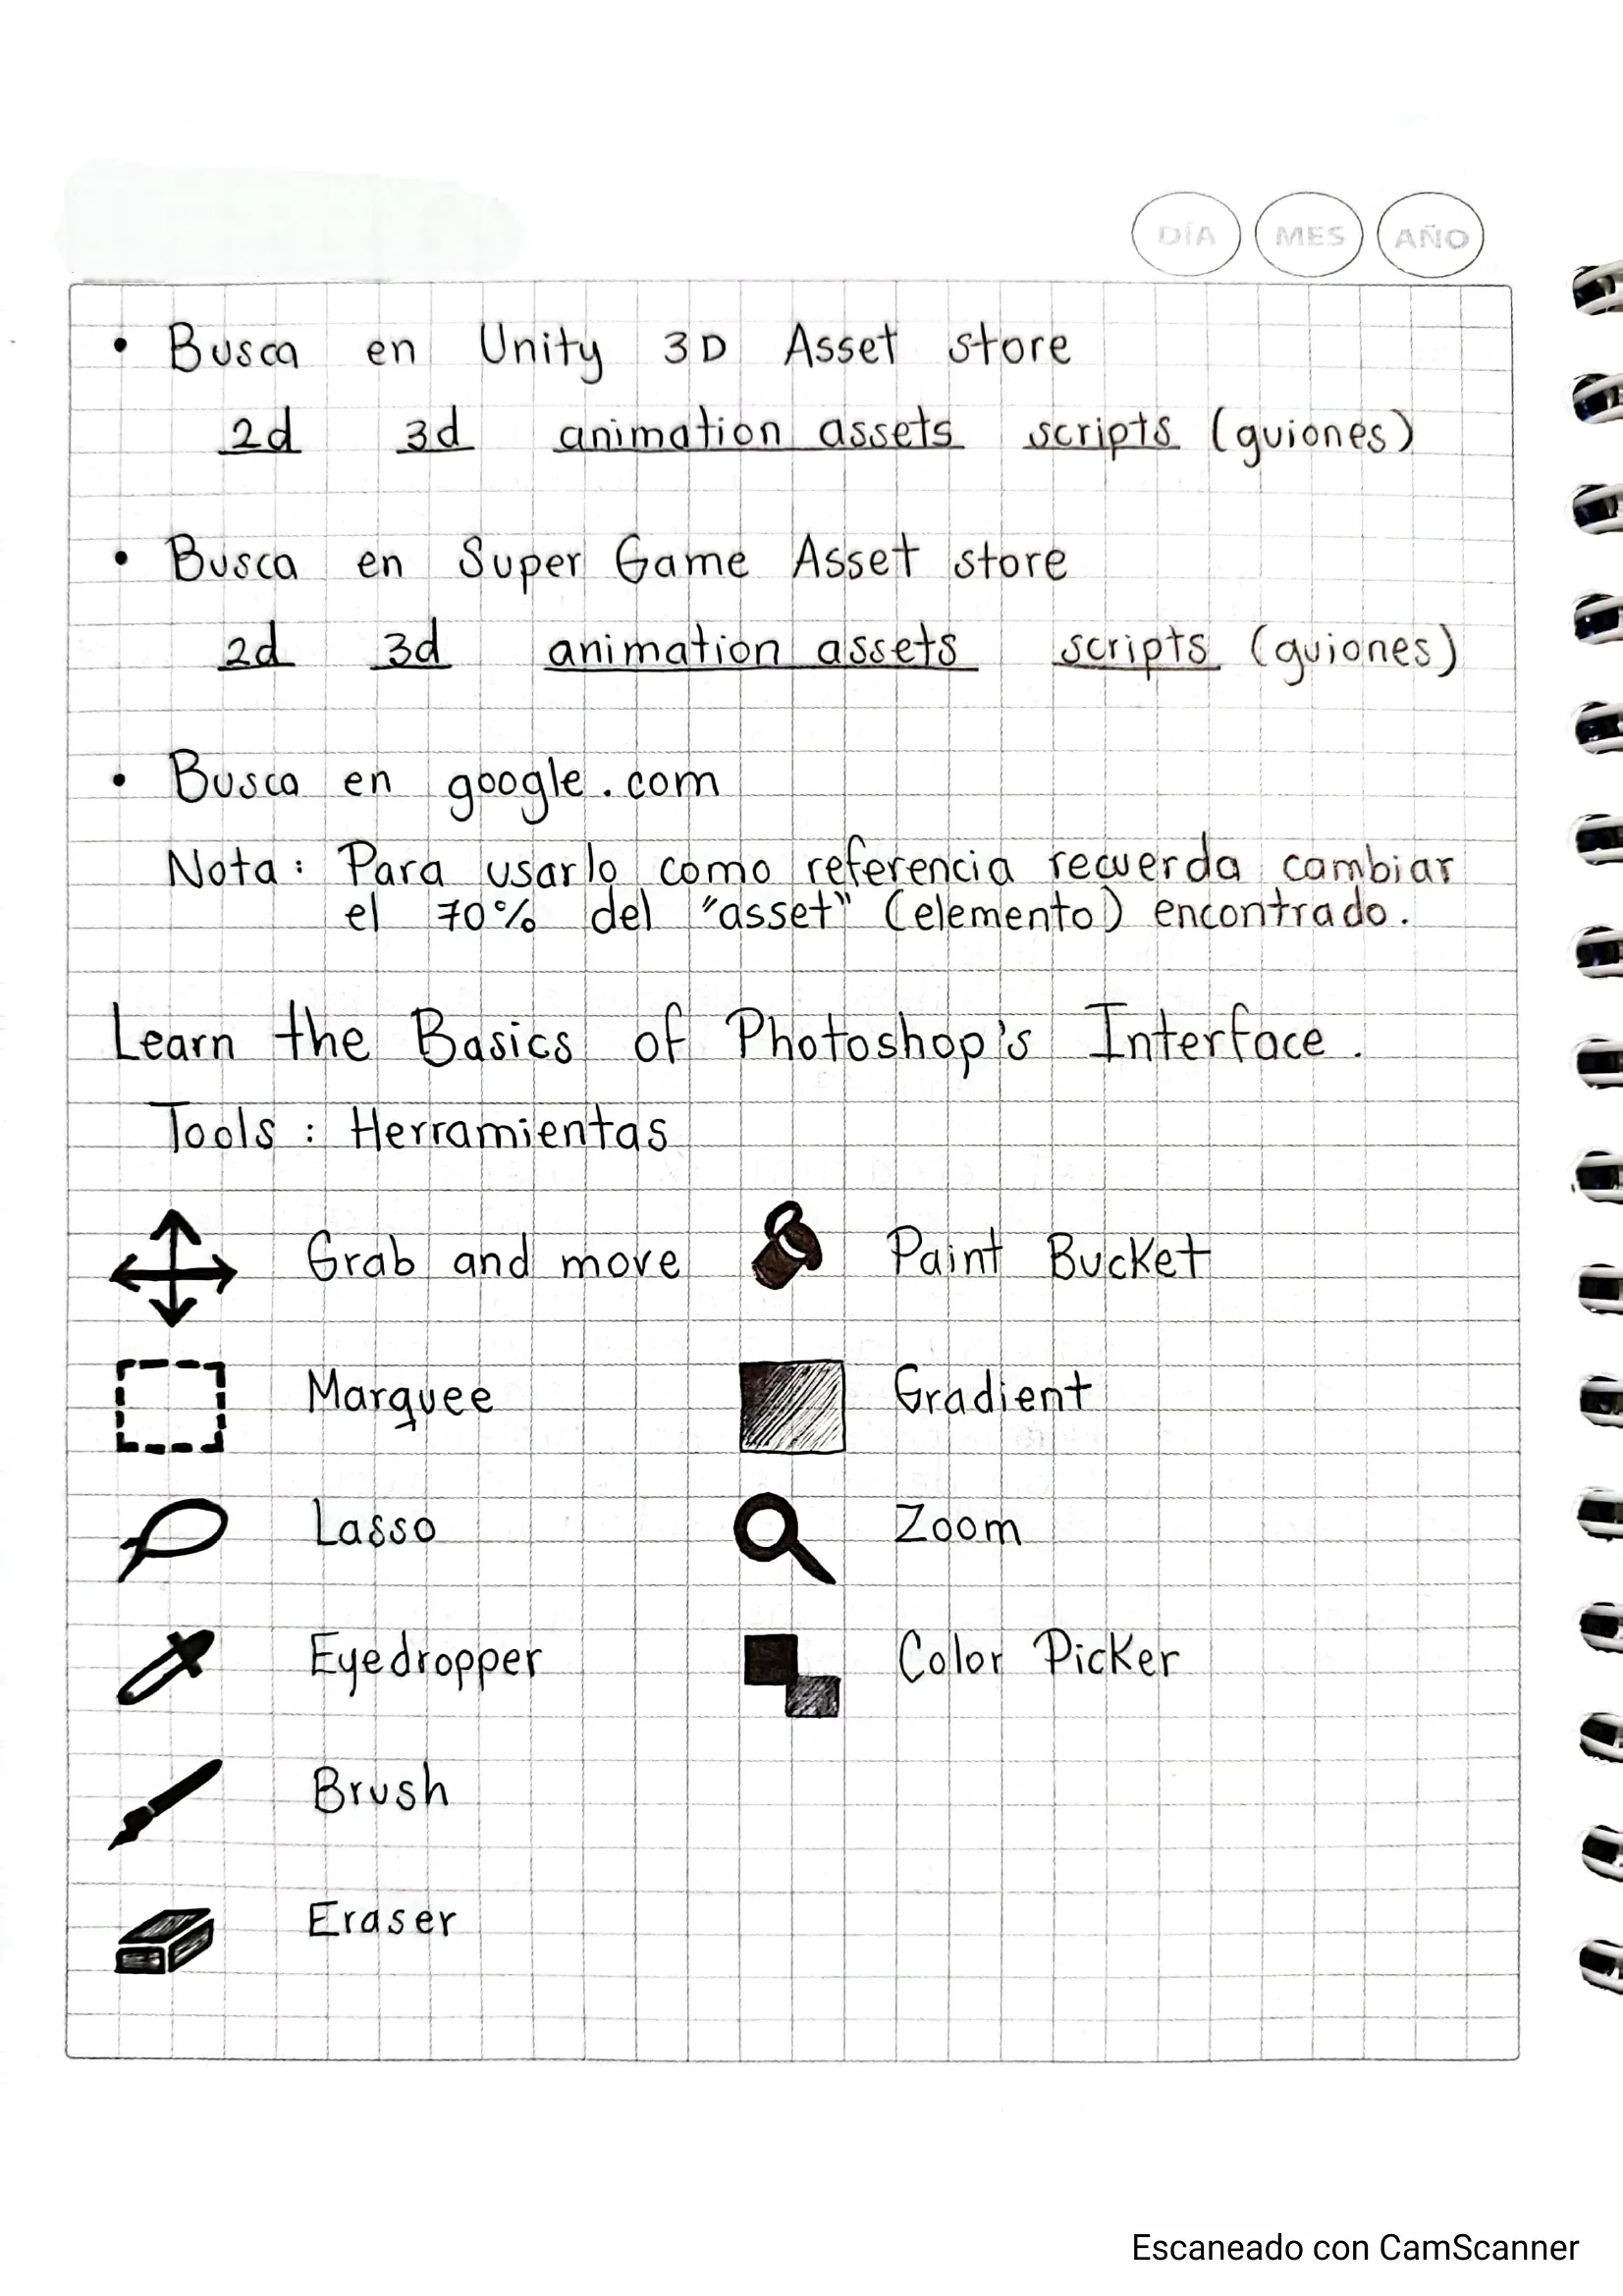 DÍA MES AÑO
• Busca en Unity 3D Asset store
2d 3d animation assets scripts (guiones)
• Busca en Super Game Asset store
2d 3d animation assets scripts (guiones)
• Busca en google.com
Nota: Para usarlo como referencia recuerda cambiar
el 70% del "asset" (elemento) encontrado.
Learn the Basics of Photoshop's Interface.
Tools: Herramientas
Grab and move Paint Bucket
Marquee Gradient
Lasso Zoom
Eyedropper Color Picker
Brush
Eraser
Escaneado con CamScanner